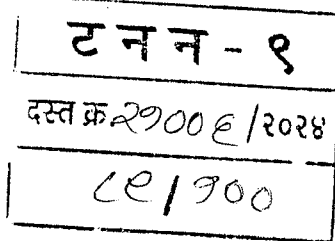 ट न न - ९
दस्त क्र २१००६/२०२४
८९/१००